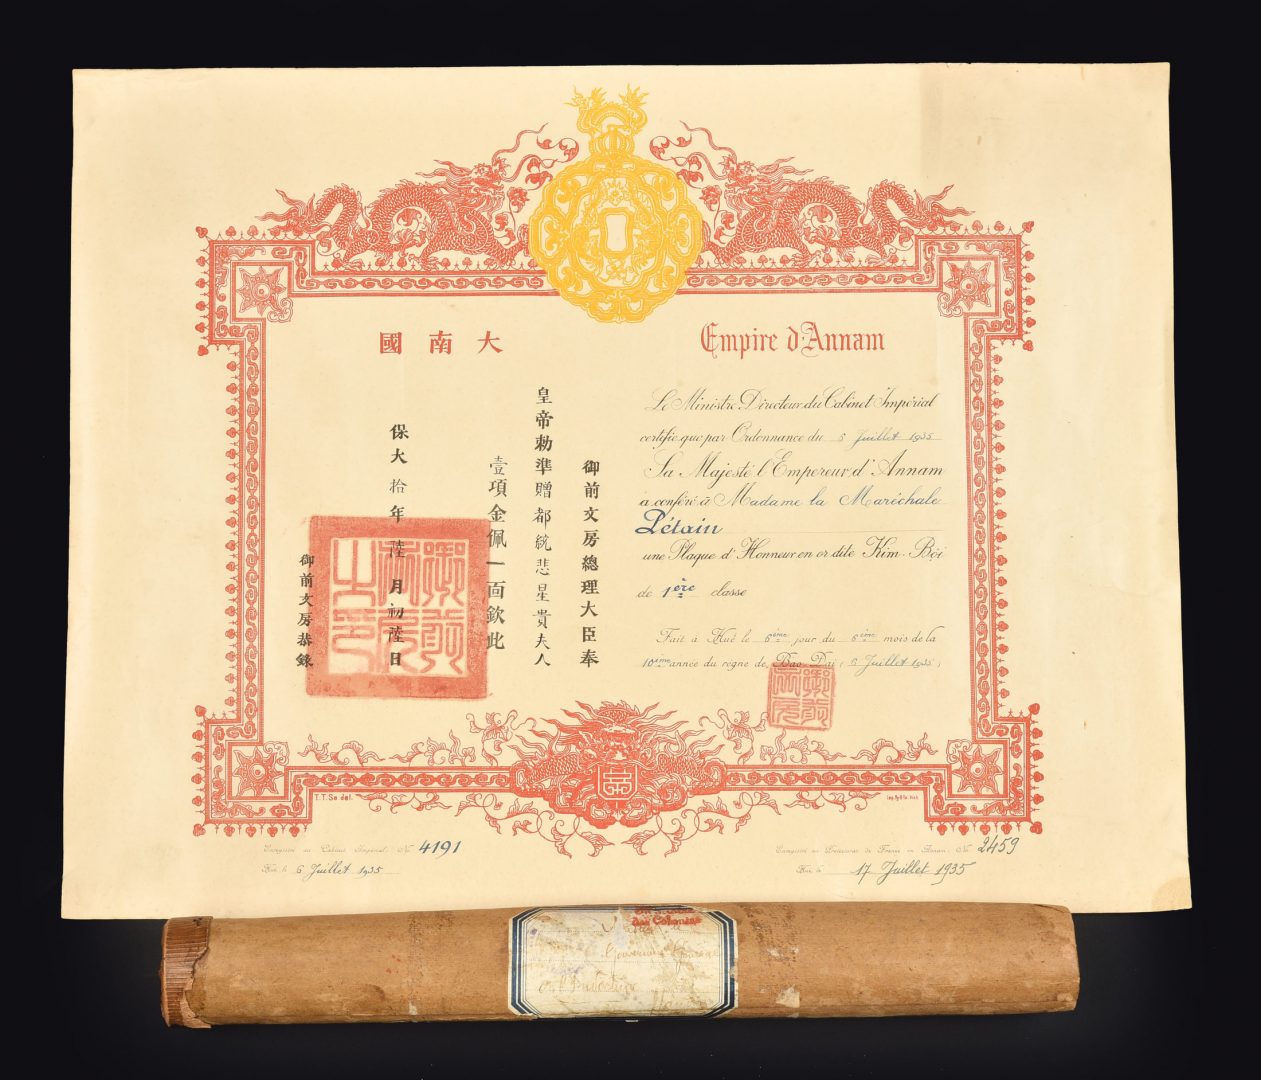 大南國
Empire d'Annam
御前文房總理大臣奉
皇帝勅準贈都統悲星貴夫人
壹項金佩一面欽此
保大拾年陸月初陸日
御前文房恭錄
Le Ministre Directeur du Cabinet Impérial
certifie que par Ordonnance du 5 Juillet 1935
Sa Majesté l'Empereur d'Annam
a conféré à Madame la Maréchale
Pétain
une Plaque d'Honneur en or dite Kim-Bội
de 1ère classe
Fait à Hué le 6ème jour du 6ème mois de la
10ème année du règne de Bao-Dai (6 Juillet 1935)
御前文房之印
御前文房
T.T.Se del.
Enregistré au Cabinet Impérial, No 4191
Hué le 6 Juillet 1935
Enregistré au Protectorat de France en Annam. No 2459
Hué le 17 Juillet 1935
des Colonies
Gouverneur Général
de l'Indochine